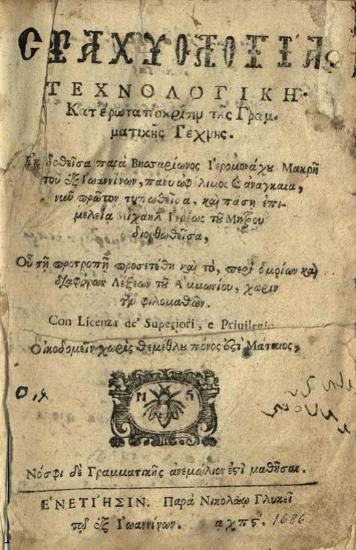 ΣΤΑΧΥΟΛΟΓΙΑ
ΤΕΧΝΟΛΟΓΙΚΗ·
Κατ' ἐρωταπόκρισιν τῆς Γραμ-
ματικῆς Τέχνης.
Ἐκδοθεῖσα παρὰ Βησσαρίωνος Ἱερομονάχου Μακρῆ
τοῦ ἐξ Ἰωαννίνων, πάνυ ὠφέλιμος ἀναγκαία,
νῦν πρῶτον τυπωθεῖσα, καὶ πάσῃ ἐπι-
μελείᾳ Μιχαὴλ Ἱερέως τοῦ
διορθωθεῖσα,
Οὗ τῇ προτροπῇ προσετέθη καὶ τὸ, περὶ ὁμοίων καὶ
διαφόρων Λέξεων τοῦ Ἀμμωνίου, χάριν
τῶν φιλομαθῶν.
Con Licenza de' Superiori, e Priuilegio
Οἰκοδομεῖν χωρὶς θεμέθλου πόνος ἐστὶ Μάταιος,
Ν Γ
Νόσφι δὲ Γραμματικῆς ἀνεμώλιον ἐστὶ μαθῆσαι.
ἙΝΕΤΙΗΣΙΝ. Παρὰ Νικολάῳ Γλυκεῖ
τῷ ἐξ Ἰωαννίνων. αχπϛ. 1686